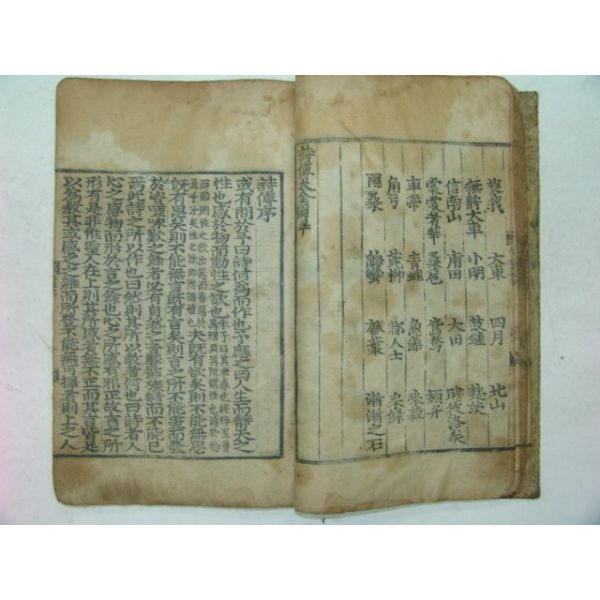 蓼莪 大東 四月 北山
無將大車 小明 鼓鍾 楚茨
信南山 甫田 大田 瞻彼洛矣
裳裳者華 桑扈 鴛鴦 頍弁
車舝 青蠅 魚藻 采菽
角弓 菀柳 都人士 采綠
隰桑 緜蠻 瓠葉 漸漸之石
詩傳大全圖畢
詩傳序
或有問於予曰詩何爲而作也予應之曰人生而靜天之
性也感於物而動性之欲也
夫旣有欲矣則不能無思
旣有思矣則不能無言旣有言矣則言之所不能盡而發
於咨嗟咏歎之餘者必有自然之音響節族而不能已
焉此詩之所以作也曰然則其所以敎者何也曰詩者人
心之感物而形於言之餘也心之所感有邪正故言之所
形有是非惟聖人在上則其所感者無不正而其言皆足
以爲敎其或感之之雜而所發不能無可擇者則上之人